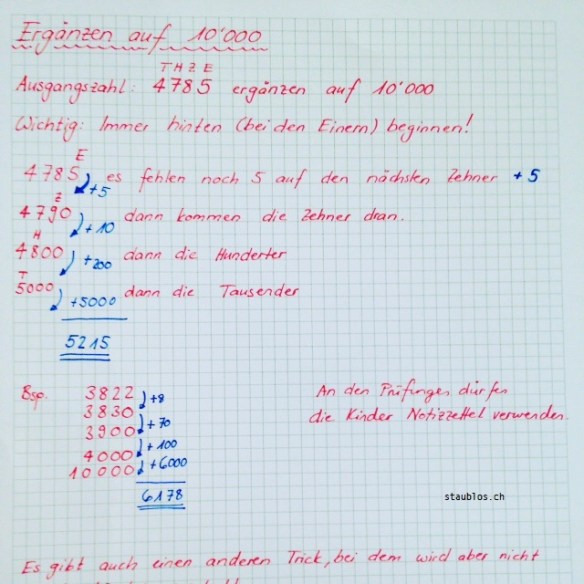 Ergänzen auf 10'000
T H Z E
Ausgangszahl: 4785 ergänzen auf 10'000
Wichtig: Immer hinten (bei den Einern) beginnen!
E
4785 +5 es fehlen noch 5 auf den nächsten Zehner +5
Z
4790 +10 dann kommen die Zehner dran.
H
4800 +200 dann die Hunderter
T
5000 +5000 dann die Tausender
5215
Bsp. 3822 +8
3830 +70
3900 +100
4000 +6000
10000
6178
An den Prüfungen dürfen
die Kinder Notizzettel verwenden.
staublos.ch
Es gibt auch einen anderen Trick, bei dem wird aber nicht